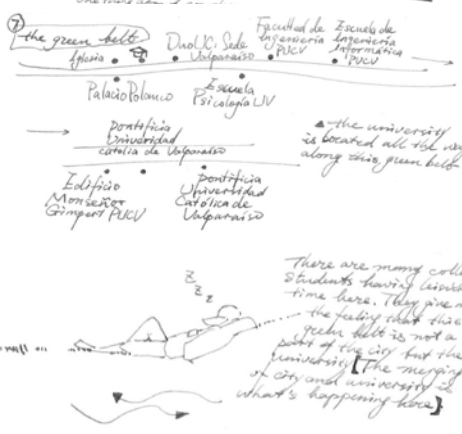 7
the green belt
Iglesia
DuoUC: Sede
Valparaíso
Facultad de
Ingeniería
PUCV
Escuela de
Ingeniería
Informática
PUCV
Palacio Polanco
Escuela
Psicología UV
Pontificia
Univeridad
catolia de Valparaíso
Edificio
Monseñor
Gimpert PUCV
pontificia
Universidad
Católica de
Valparaíso
the university
is located all the
along this green belt
z z z
There are many
students having
time here. They give
the feeling that this
green belt is not a
part of the city but the
university [The merging
of city and university is
what's happening here]